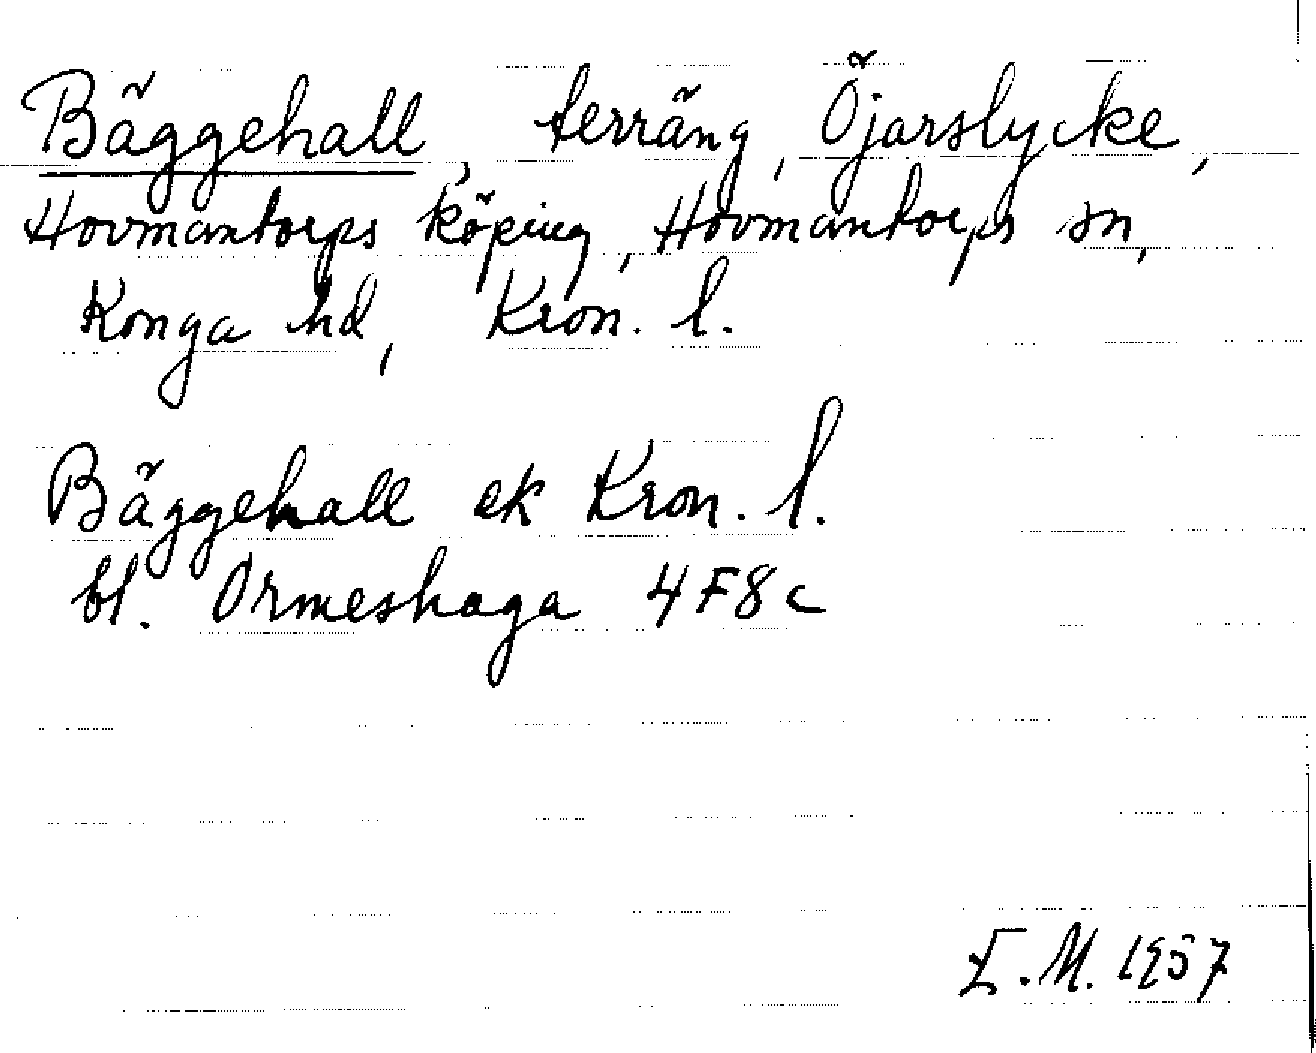 Bäggehall, terräng, Öjarslycke,
Hovmantorps köping, Hovmantorps sn,
Konga hd, Kron. l.
Bäggehall ek Kron. l.
bl. Ormeshaga 4F8c
E.M. 1957